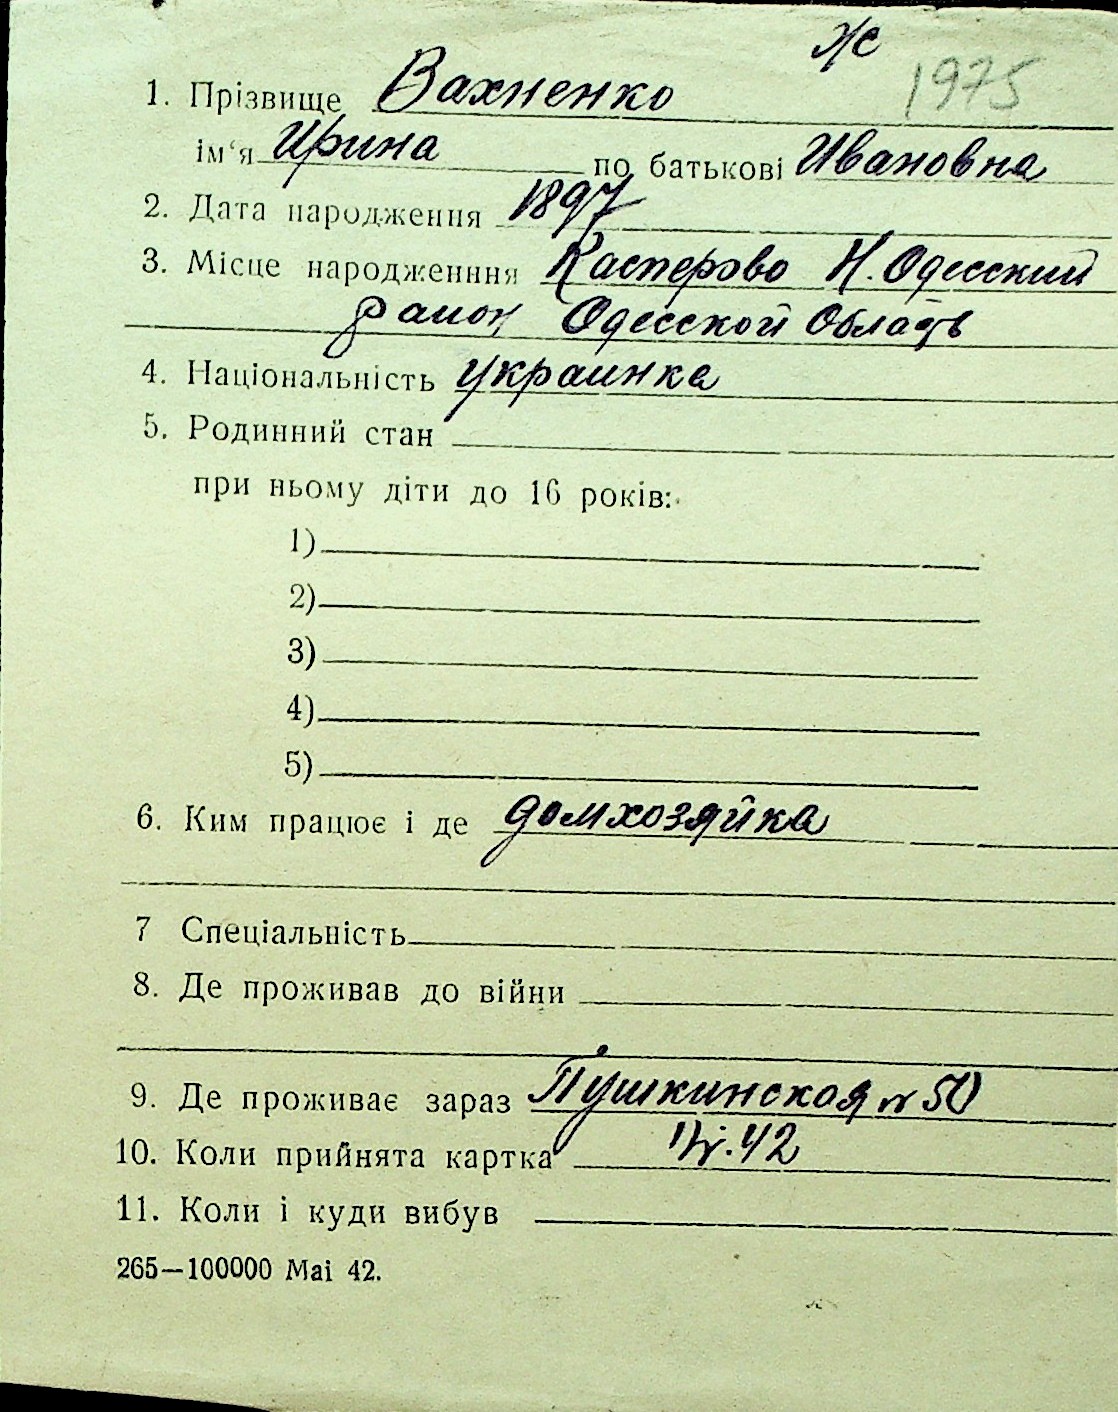 ж
1975
1. Прізвище Вахненко
ім'я Ирина по батькові Ивановна
2. Дата народження 1897
3. Місце народженння Касперово Н. Одесский
район Одесской Область
4. Національність украинка
5. Родинний стан
при ньому діти до 16 років:
1)
2)
3)
4)
5)
6. Ким працює і де домхозяйка
7 Спеціальність
8. Де проживав до війни
9. Де проживає зараз Пушкинская № 50
10. Коли прийнята картка
11. Коли і куди вибув
265—100000 Mai 42.